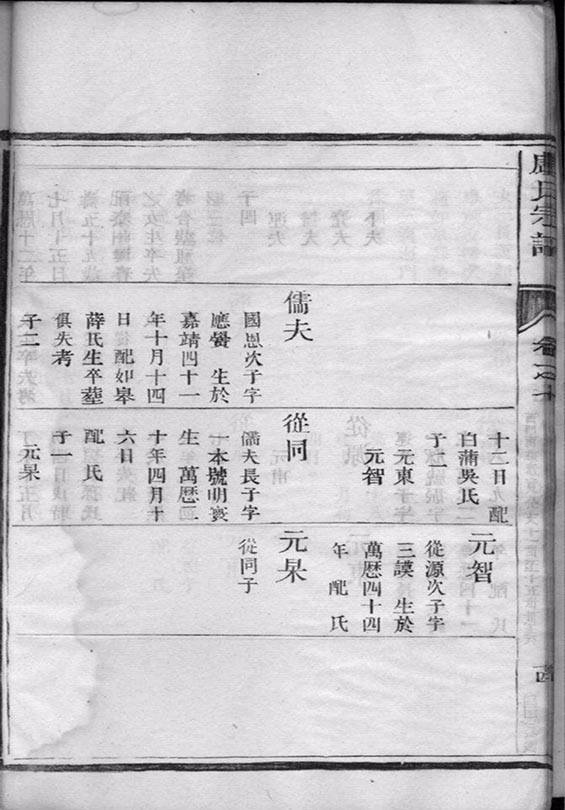 盧氏宗譜
卷之十
儒夫
國恩次子字
應賓 生於
嘉靖四十一
年十月十四
日 配如皋
薛氏生卒塟
俱失考
子二
十二日九 配
白蒲吳氏
子二
元東
元智
從同
儒夫長子字
一本號明寰
生 萬曆二
十年四月十
六日
配 氏
子一
元杲
元智
從源次子字
三謨 生於
萬曆四十四
年 配 氏
元杲
從同子